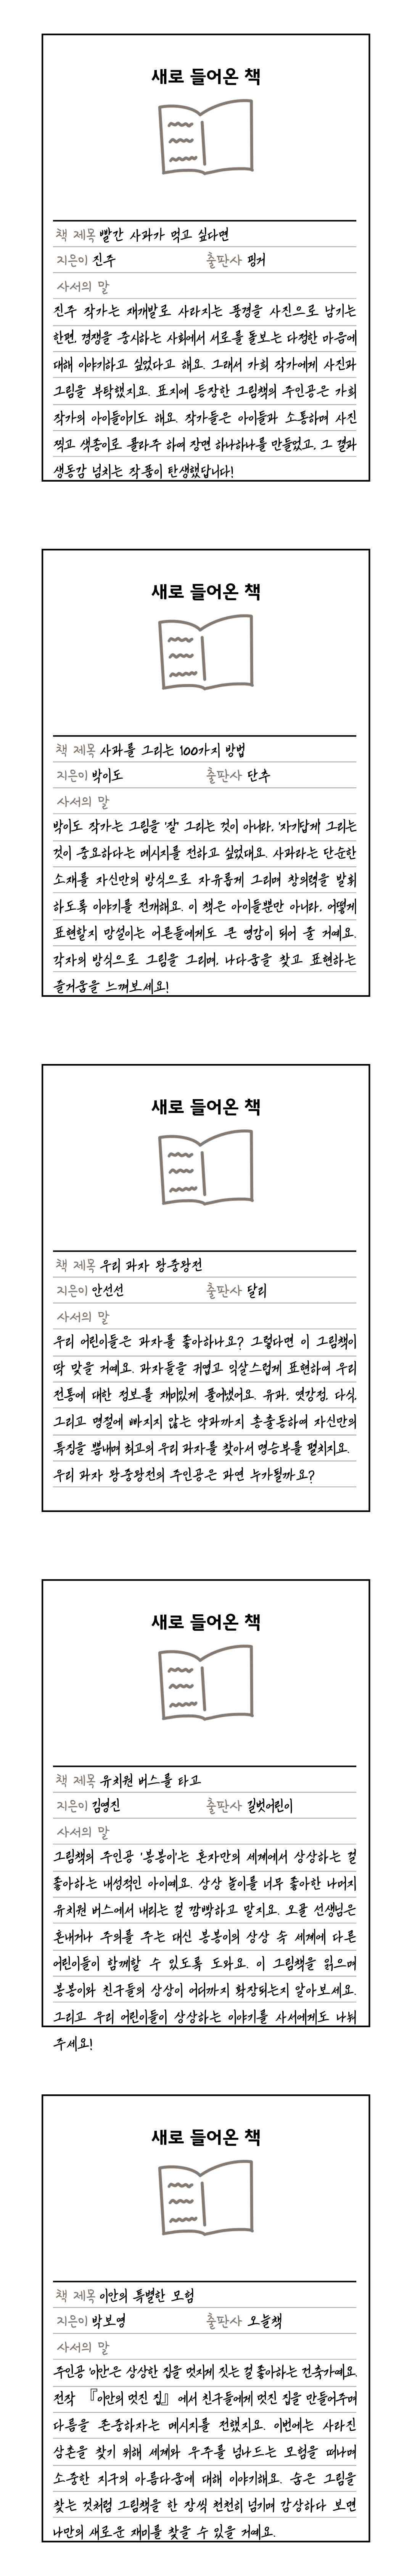 새로 들어온 책
책 제목 빨간 사과가 먹고 싶다면
지은이 진주 출판사 핑거
사서의 말
진주 작가는 재개발로 사라지는 풍경을 사진으로 남기는
한편, 경쟁을 중시하는 사회에서 서로를 돌보는 다정한 마음에
대해 이야기하고 싶었다고 해요. 그래서 가희 작가에게 사진과
그림을 부탁했지요. 표지에 등장한 그림책의 주인공은 가희
작가의 아이들이기도 해요. 작가들은 아이들과 소통하며 사진
찍고 색종이로 콜라주 하여 장면 하나하나를 만들었고, 그 결과
생동감 넘치는 작품이 탄생했답니다!
새로 들어온 책
책 제목 사과를 그리는 100가지 방법
지은이 박이도 출판사 단추
사서의 말
박이도 작가는 그림을 '잘' 그리는 것이 아니라, '자기답게' 그리는
것이 중요하다는 메시지를 전하고 싶었대요. 사과라는 단순한
소재를 자신만의 방식으로 자유롭게 그리며 창의력을 발휘
하도록 이야기를 전개해요. 이 책은 아이들뿐만 아니라, 어떻게
표현할지 망설이는 어른들에게도 큰 영감이 되어 줄 거예요.
각자의 방식으로 그림을 그리며, 나다움을 찾고 표현하는
즐거움을 느껴보세요!
새로 들어온 책
책 제목 우리 과자 왕중왕전
지은이 안선선 출판사 달리
사서의 말
우리 어린이들은 과자를 좋아하나요? 그렇다면 이 그림책이
딱 맞을 거예요. 과자들을 귀엽고 익살스럽게 표현하여 우리
전통에 대한 정보를 재미있게 풀어냈어요. 유과, 엿강정, 다식,
그리고 명절에 빠지지 않는 약과까지 총출동하여 자신만의
특징을 뽐내며 최고의 우리 과자를 찾아서 명승부를 펼치지요.
우리 과자 왕중왕전의 주인공은 과연 누가될까요?
새로 들어온 책
책 제목 유치원 버스를 타고
지은이 김영진 출판사 길벗어린이
사서의 말
그림책의 주인공 '봉봉이'는 혼자만의 세계에서 상상하는 걸
좋아하는 내성적인 아이예요. 상상 놀이를 너무 좋아한 나머지
유치원 버스에서 내리는 걸 깜빡하고 말지요. 오골 선생님은
혼내거나 주의를 주는 대신 봉봉이의 상상 속 세계에 다른
어린이들이 함께할 수 있도록 도와요. 이 그림책을 읽으며
봉봉이와 친구들의 상상이 어디까지 확장되는지 알아보세요.
그리고 우리 어린이들이 상상하는 이야기를 사서에게도 나눠
주세요!
새로 들어온 책
책 제목 이안의 특별한 모험
지은이 박보영 출판사 오늘책
사서의 말
주인공 '이안'은 상상한 집을 멋지게 짓는 걸 좋아하는 건축가예요.
전작 『이안의 멋진 집』에서 친구들에게 멋진 집을 만들어주며
다름을 존중하자는 메시지를 전했지요. 이번에는 사라진
삼촌을 찾기 위해 세계와 우주를 넘나드는 모험을 떠나며
소중한 지구의 아름다움에 대해 이야기해요. 숨은 그림을
찾는 것처럼 그림책을 한 장씩 천천히 넘기며 감상하다 보면
나만의 새로운 재미를 찾을 수 있을 거예요.